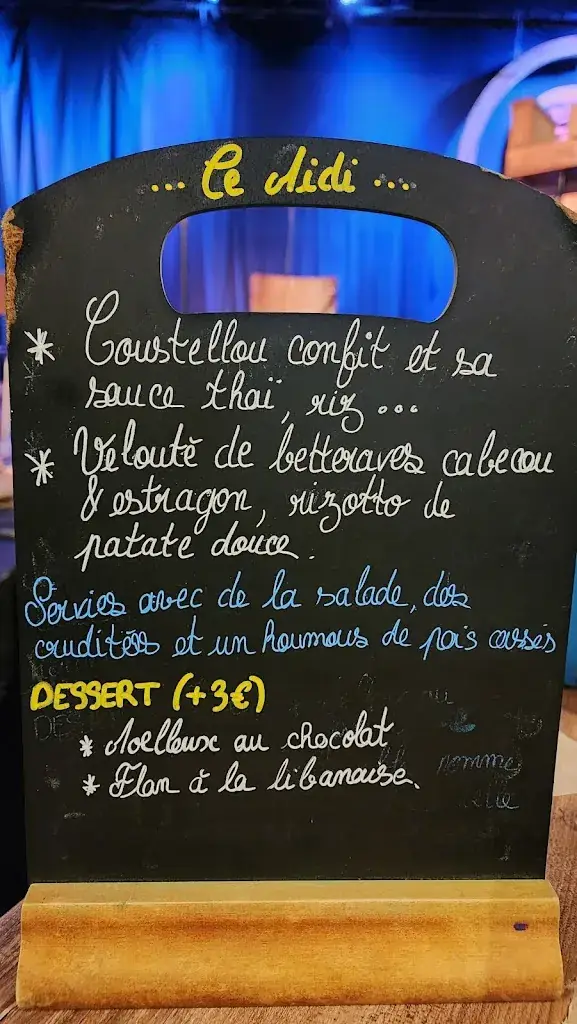 ... Ce Midi ...
* Coustellou confit et sa
sauce thaï, riz ...
* Velouté de betteraves cabecou
& estragon, rizotto de
patate douce.
Servies avec de la salade, des
crudités et un houmous de pois cassés
DESSERT (+3€)
* Moelleux au chocolat
* Flan à la libanaise.
pomme